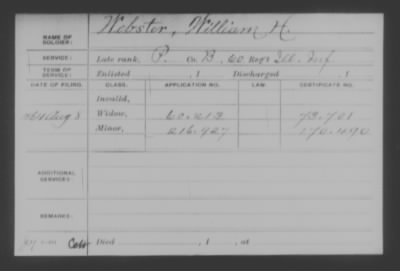 NAME OF SOLDIER: Webster, William H.
SERVICE: Late rank, P. Co. B, 60 Reg't Ill. Inf.
TERM OF SERVICE: Enlisted , 1 Discharged , 1
DATE OF FILING. CLASS. APPLICATION NO. LAW. CERTIFICATE NO.
Invalid,
Aug 8 Widow, 60.213 73.701
Minor, 216.927 170.490
ADDITIONAL SERVICES:
REMARKS:
Died , 1 , at